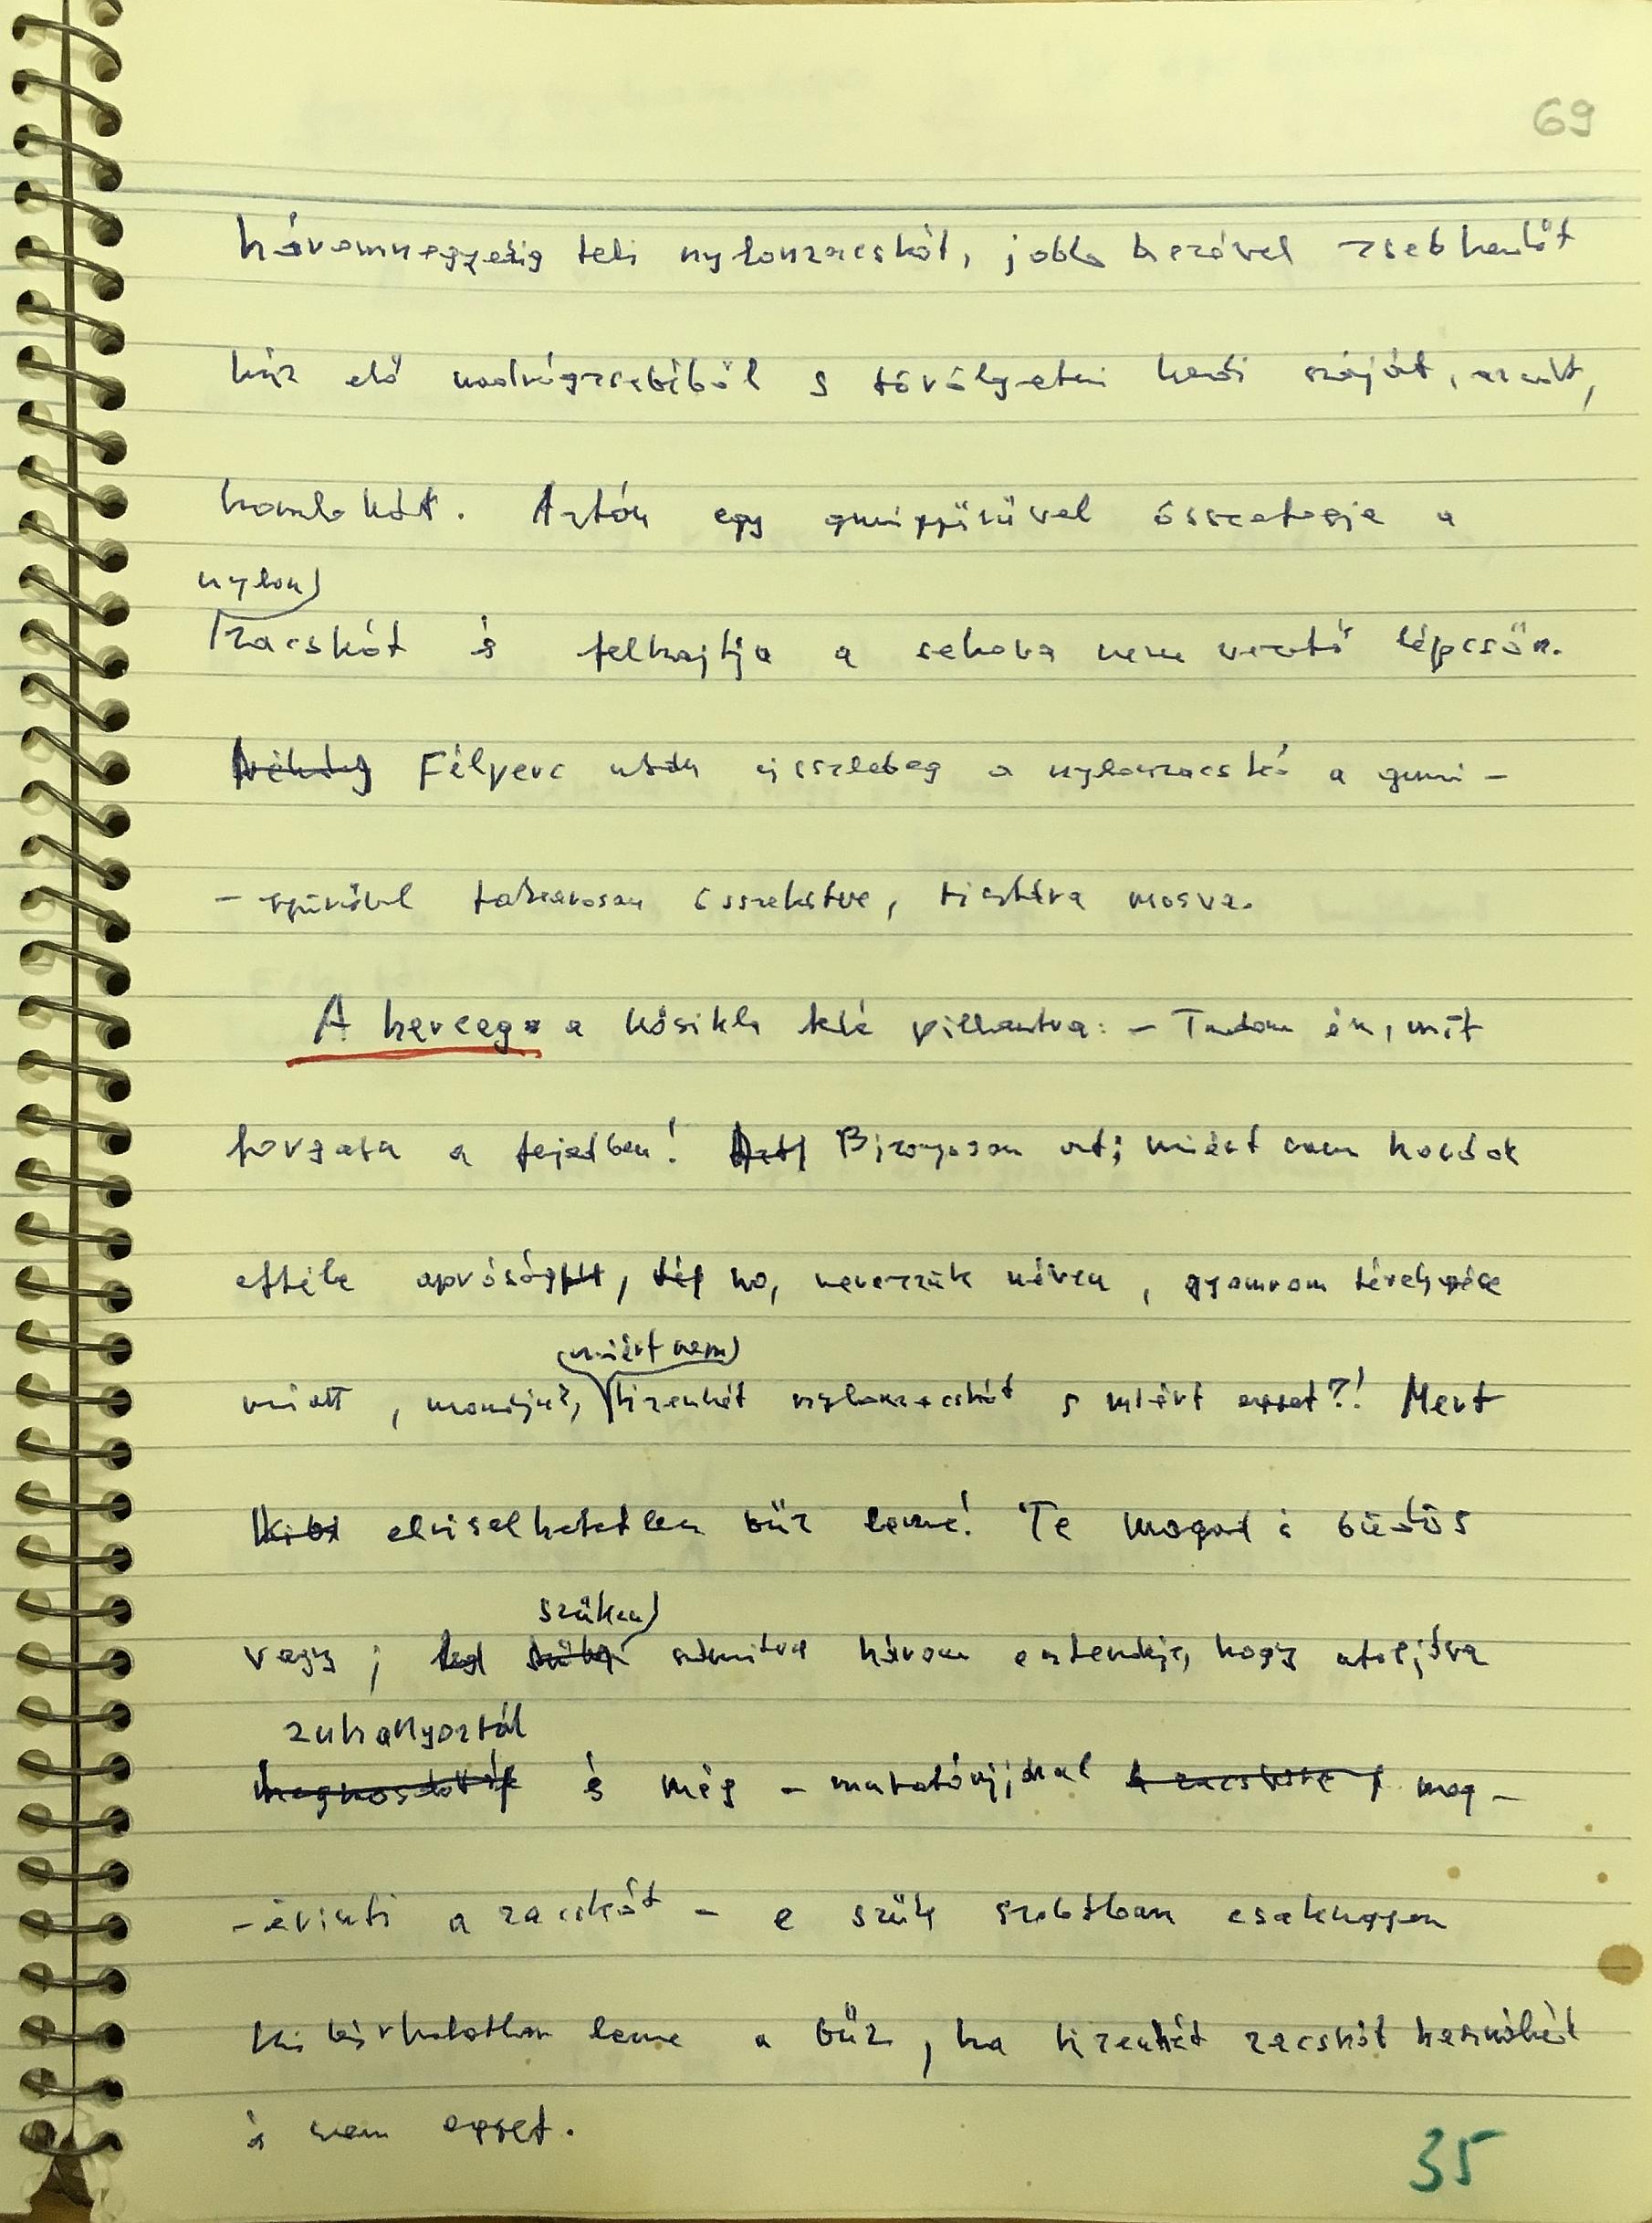 69
háromnegyedig teli nylonzacskót, jobb kezével zsebkendőt
húz elő nadrágzsebéből s törölgetni kezdi száját, arcát,
homlokát. Aztán egy gumigyűrűvel összefogja a
nylon
zacskót és felhajítja a sehova nem vezető lépcsőn.
Félperc után visszalebeg a nylonzacskó a gumi-
-gyűrűvel takarosan összekötve, tisztára mosva.
A herceg a kósikli felé pillantva: - Tudom én, mit
forgatsz a fejedben! Bizonyosan azt; miért nem hordok
efféle apróság, no, nevezzük néven, gyomrom tévelygése
miént nem
miatt, mondjuk, tizenhét nylonzacskót s miért egyet?! Mert
elviselhetetlen bűz lenne! Te magad is büdös
szűken
vagy; számítva három esztendeje, hogy utoljára
zuhanyoztál
és még - mutatóujjával meg-
-érinti a zacskót - e szűk szobában csakugyan
kibírhatatlan lenne a bűz, ha tizenhét zacskót használnál
s nem egyet.
35